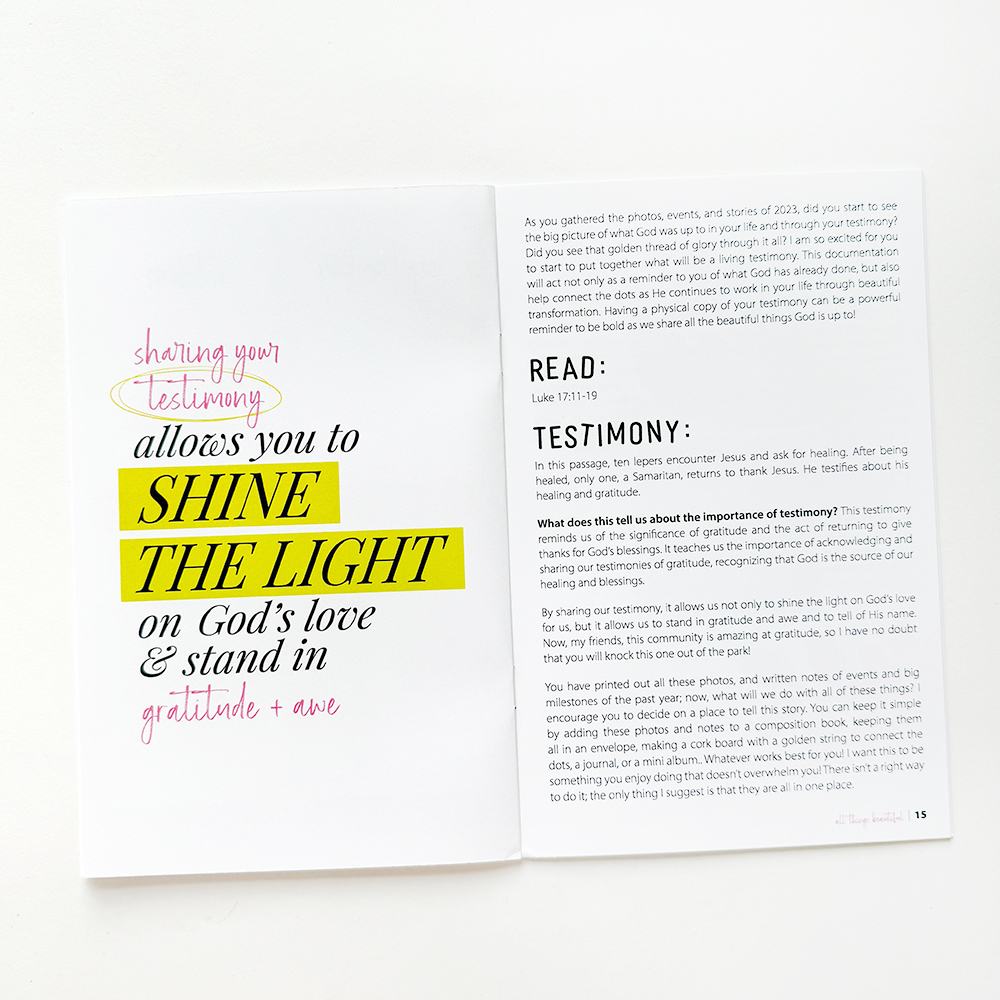 sharing your
testimony
allows you to
SHINE
THE LIGHT
on God's love
& stand in
gratitude + awe
As you gathered the photos, events, and stories of 2023, did you start to see
the big picture of what God was up to in your life and through your testimony?
Did you see that golden thread of glory through it all? I am so excited for you
to start to put together what will be a living testimony. This documentation
will act not only as a reminder to you of what God has already done, but also
help connect the dots as He continues to work in your life through beautiful
transformation. Having a physical copy of your testimony can be a powerful
reminder to be bold as we share all the beautiful things God is up to!
READ:
Luke 17:11-19
TESTIMONY:
In this passage, ten lepers encounter Jesus and ask for healing. After being
healed, only one, a Samaritan, returns to thank Jesus. He testifies about his
healing and gratitude.
What does this tell us about the importance of testimony? This testimony
reminds us of the significance of gratitude and the act of returning to give
thanks for God's blessings. It teaches us the importance of acknowledging and
sharing our testimonies of gratitude, recognizing that God is the source of our
healing and blessings.
By sharing our testimony, it allows us not only to shine the light on God's love
for us, but it allows us to stand in gratitude and awe and to tell of His name.
Now, my friends, this community is amazing at gratitude, so I have no doubt
that you will knock this one out of the park!
You have printed out all these photos, and written notes of events and big
milestones of the past year; now, what will we do with all of these things? I
encourage you to decide on a place to tell this story. You can keep it simple
by adding these photos and notes to a composition book, keeping them
all in an envelope, making a cork board with a golden string to connect the
dots, a journal, or a mini album.. Whatever works best for you! I want this to be
something you enjoy doing that doesn't overwhelm you! There isn't a right way
to do it; the only thing I suggest is that they are all in one place.
all things beautiful | 15